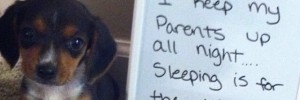 I keep my
Parents up
all night....
Sleeping is for
the